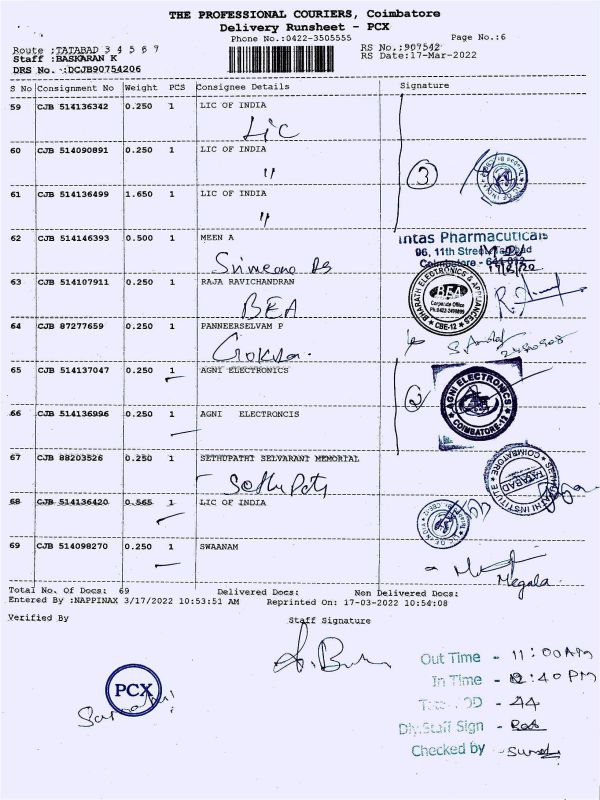 THE PROFESSIONAL COURIERS, Coimbatore
Delivery Runsheet - PCX
Phone No.:0422-3505555 Page No.:6
Route :TATABAD 3 4 5 6 7 RS No.:907542
Staff :BASKARAN K RS Date:17-Mar-2022
DRS No. :DCJB90754206
S No Consignment No Weight PCS Consignee Details Signature
59 CJB 514136342 0.250 1 LIC OF INDIA
Lic
60 CJB 514090891 0.250 1 LIC OF INDIA
"
3
61 CJB 514136499 1.650 1 LIC OF INDIA
"
62 CJB 514146393 0.500 1 MEEN A
Intas Pharmacuticals
96, 11th Street, Tatabad
Coimbatore - 641 012
63 CJB 514107911 0.250 1 RAJA RAVICHANDRAN
BEA
BHARATH ELECTRONICS & APPLIANCES
BEA
Corporate Office
CBE-12
64 CJB 87277659 0.250 1 PANNEERSELVAM P
65 CJB 514137047 0.250 1 AGNI ELECTRONICS
2
AGNI ELECTRONICS
COIMBATORE-12
66 CJB 514136996 0.250 1 AGNI ELECTRONCIS
67 CJB 88203526 0.250 1 SETHUPATHI SELVARANI MEMORIAL
TATABAD
COIMBATORE
68 CJB 514136420 0.565 1 LIC OF INDIA
69 CJB 514098270 0.250 1 SWAANAM
Megala
Total No. Of Docs: 69 Delivered Docs: Non Delivered Docs:
Entered By :NAPPINAX 3/17/2022 10:53:51 AM Reprinted On : 17-03-2022 10:54:08
Verified By Staff Signature
PCX
Out Time - 11:00AM
In Time - 2:40 PM
44
Dly.Staff Sign -
Checked by -